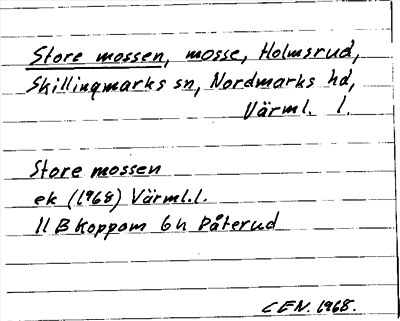 Store mossen, mosse, Holmsrud,
Skillingmarks sn, Nordmarks hd,
Värml. l.
Store mossen
ek (1968) Värml.l.
11 B Koppom 6 h Påterud
CEN. 1968.